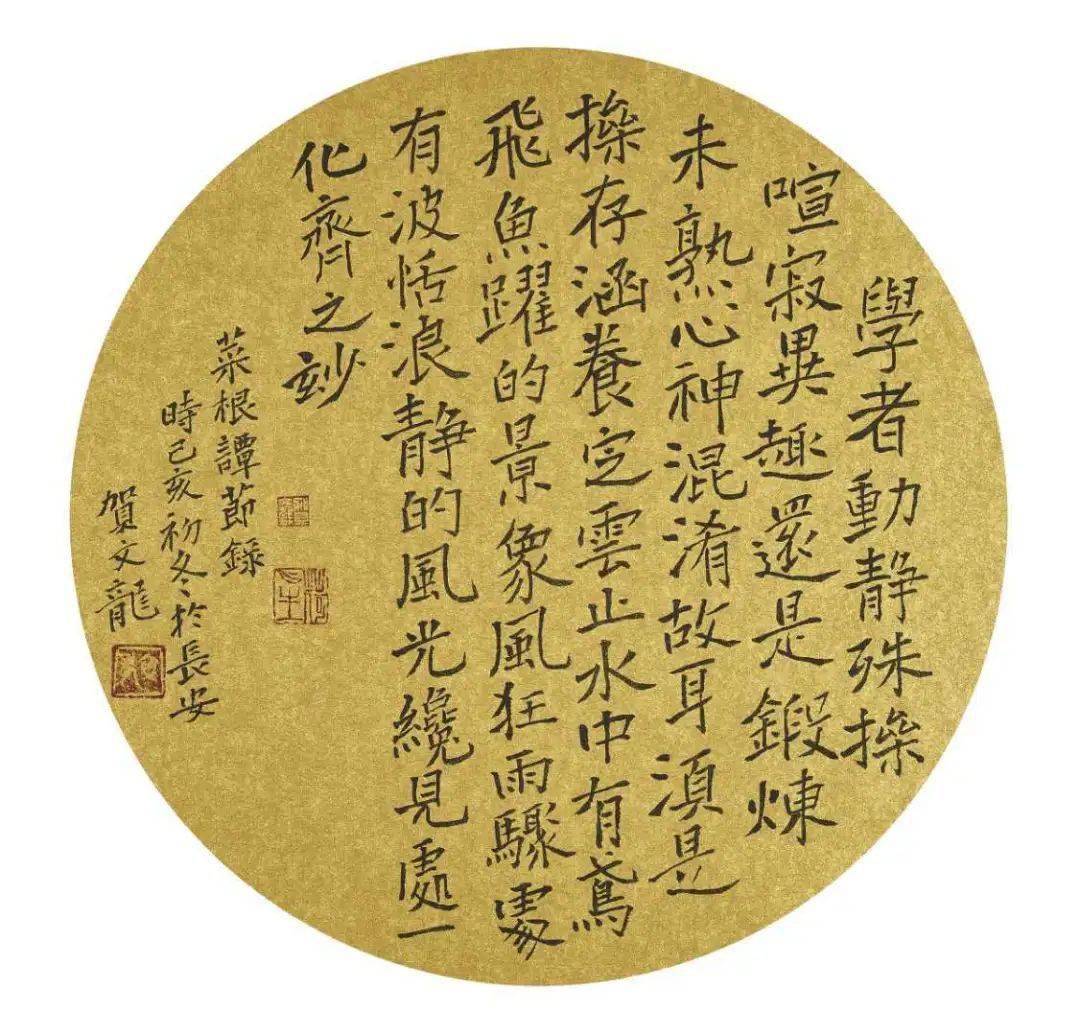 學者動静殊操
喧寂異趣還是鍛煉
未熟心神混淆故耳湏是
操存涵養定雲止水中有鳶
飛魚躍的景象風狂雨驟處
有波恬浪静的風光纔見處一
化齊之玅
菜根譚節錄
時己亥初冬於長安
賀文龍